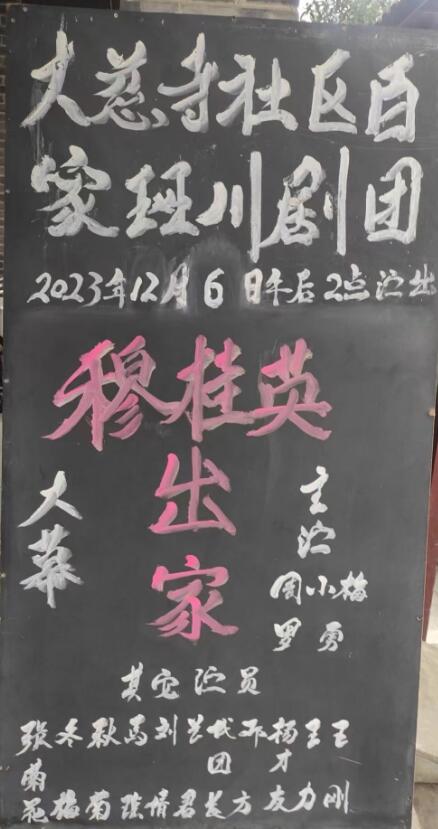 大慈寺社区百
家班川剧团
2023年12月6日午后2点演出
穆桂英
出
家
大
幕
主
演
周小梅
罗勇
其它演员
张菊花
冬梅
秋菊
马
刘倩
兰君
代团长
邓方
杨才友
王力
王刚